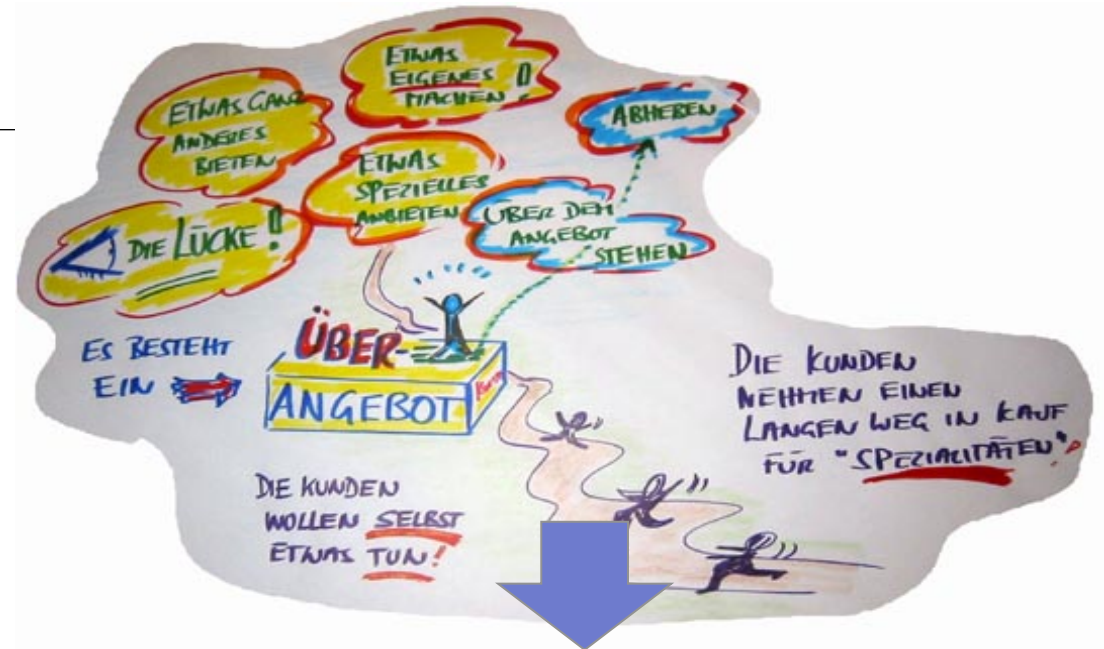 ETWAS
EIGENES
MACHEN!
ETWAS GANZ
ANDERES
BIETEN
ABHEBEN
ETWAS
SPEZIELLES
ANBIETEN
ÜBER DEM
ANGEBOT
STEHEN
DIE LÜCKE!
ES BESTEHT
EIN
ÜBER-
ANGEBOT
DIE KUNDEN
NEHMEN EINEN
LANGEN WEG IN KAUF
FÜR "SPEZIALITÄTEN"!
DIE KUNDEN
WOLLEN SELBST
ETWAS TUN!